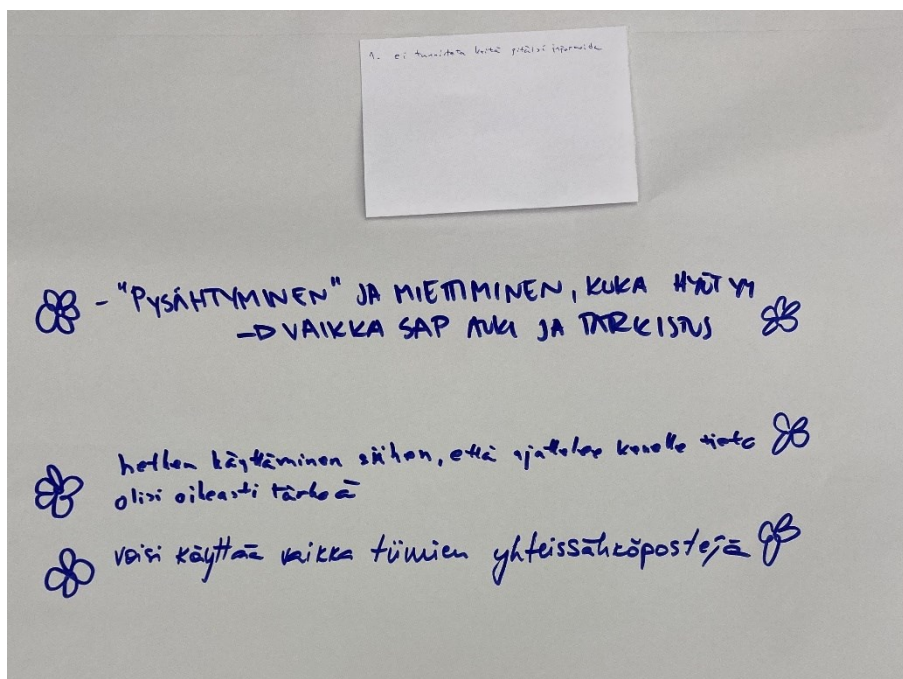 1. ei tunnisteta keitä pitäisi informoida
- "PYSÄHTYMINEN" JA MIETTIMINEN, KUKA HYÖTYY
→ VAIKKA SAP AUKI JA TARKISTUS
hetken käyttäminen siihen, että ajattelee kenelle tieto
olisi oikeasti tärkeä
voisi käyttää vaikka tiimien yhteissähköpostejä